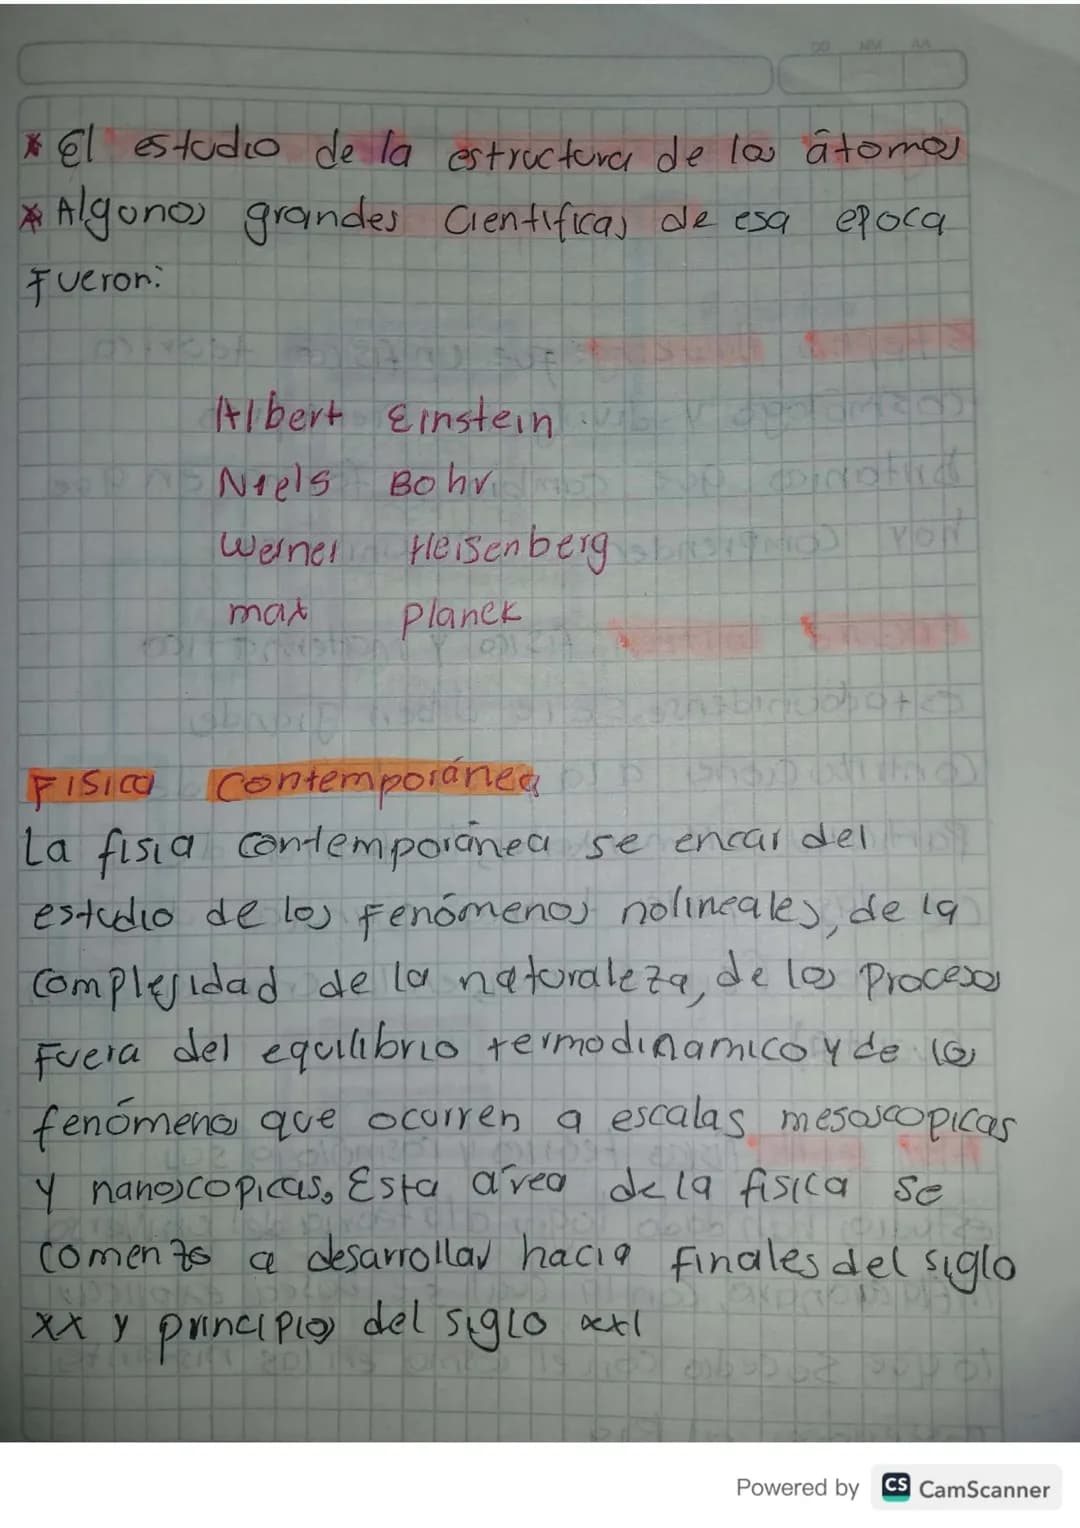 DD MM AA
* El estudio de la estructura de los átomos
* Algunos grandes Científicas de esa epoca
Fueron:
Albert Einstein
Niels Bohr
Werner Heisenberg
max Planek
FISICA Contemporánea
La fisia contemporánea se encar del
estudio de los Fenómenos nolineales, de la
complejidad de la naturaleza, de los Procesos
Fuera del equilibrio termodinamico y de los
fenómenos que ocurren a escalas mesoscopicas
y nanoscopicas. Esta área de la fisica se
comenzo a desarrollar hacia finales del siglo
xx y principios del siglo xxl
Powered by CS CamScanner